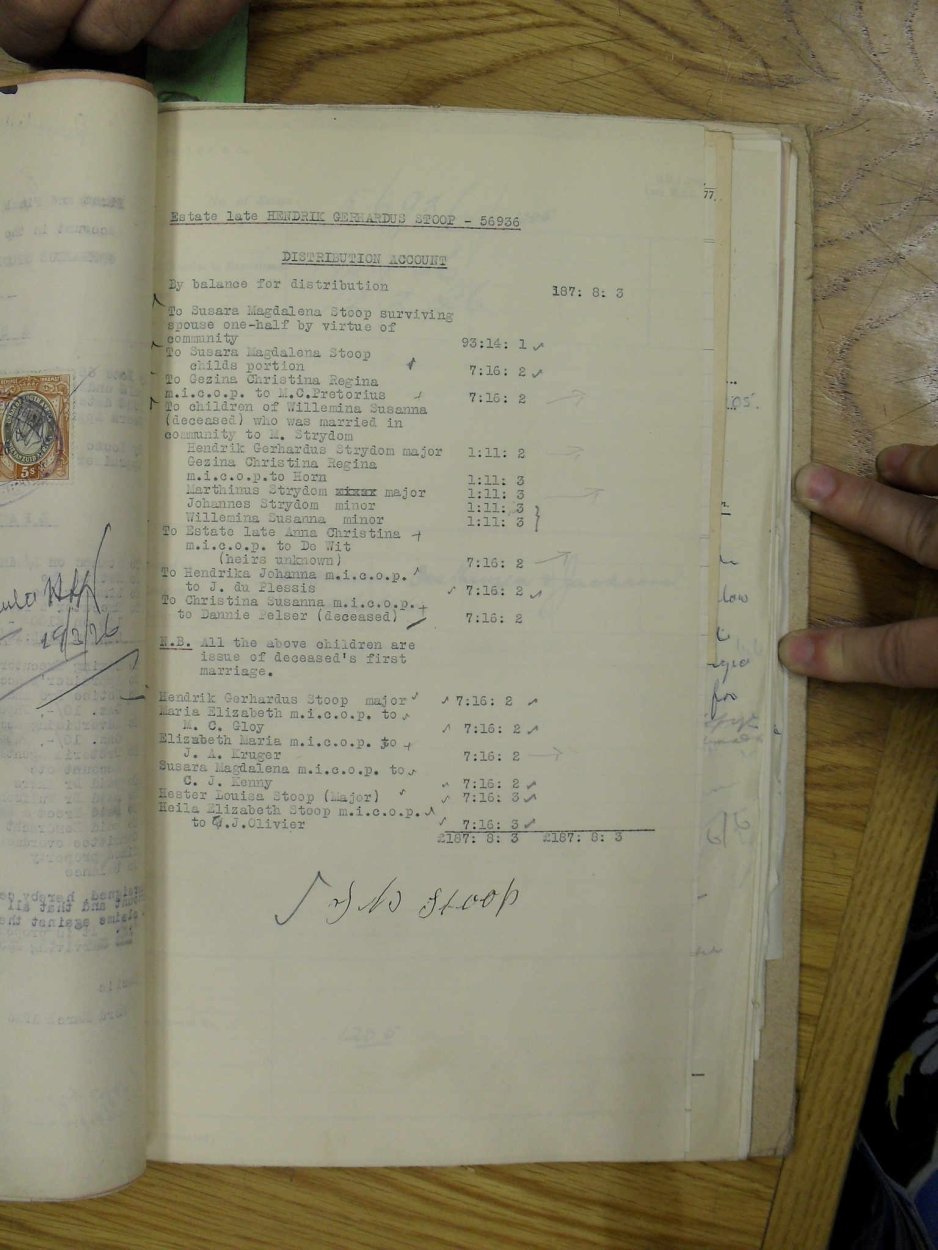 77.
Estate late HENDRIK GERHARDUS STOOP - 56936
DISTRIBUTION ACCOUNT
By balance for distribution 187: 8: 3
To Susara Magdalena Stoop surviving
spouse one-half by virtue of
community 93:14: 1
To Susara Magdalena Stoop
childs portion 7:16: 2
To Gezina Christina Regina
m.i.c.o.p. to M.C.Pretorius 7:16: 2
To children of Willemina Susanna
(deceased) who was married in
community to M. Strydom
Hendrik Gerhardus Strydom major 1:11: 2
Gezina Christina Regina
m.i.c.o.p.to Horn 1:11: 3
Marthinus Strydom major 1:11: 3
Johannes Strydom minor 1:11: 3
Willemina Susanna minor 1:11: 3
To Estate late Anna Christina
m.i.c.o.p. to De Wit
(heirs unknown) 7:16: 2
To Hendrika Johanna m.i.c.o.p.
to J. du Plessis 7:16: 2
To Christina Susanna m.i.c.o.p.
to Dannie Pelser (deceased) 7:16: 2
N.B. All the above children are
issue of deceased's first
marriage.
Hendrik Gerhardus Stoop major 7:16: 2
Maria Elizabeth m.i.c.o.p. to
M. C. Gloy 7:16: 2
Elizabeth Maria m.i.c.o.p. to
J. A. Kruger 7:16: 2
Susara Magdalena m.i.c.o.p. to
C. J. Kenny 7:16: 2
Hester Louisa Stoop (Major) 7:16: 3
Heila Elizabeth Stoop m.i.c.o.p.
to J.Olivier 7:16: 3
£187: 8: 3 £187: 8: 3
Stoop
5s
19/3/26